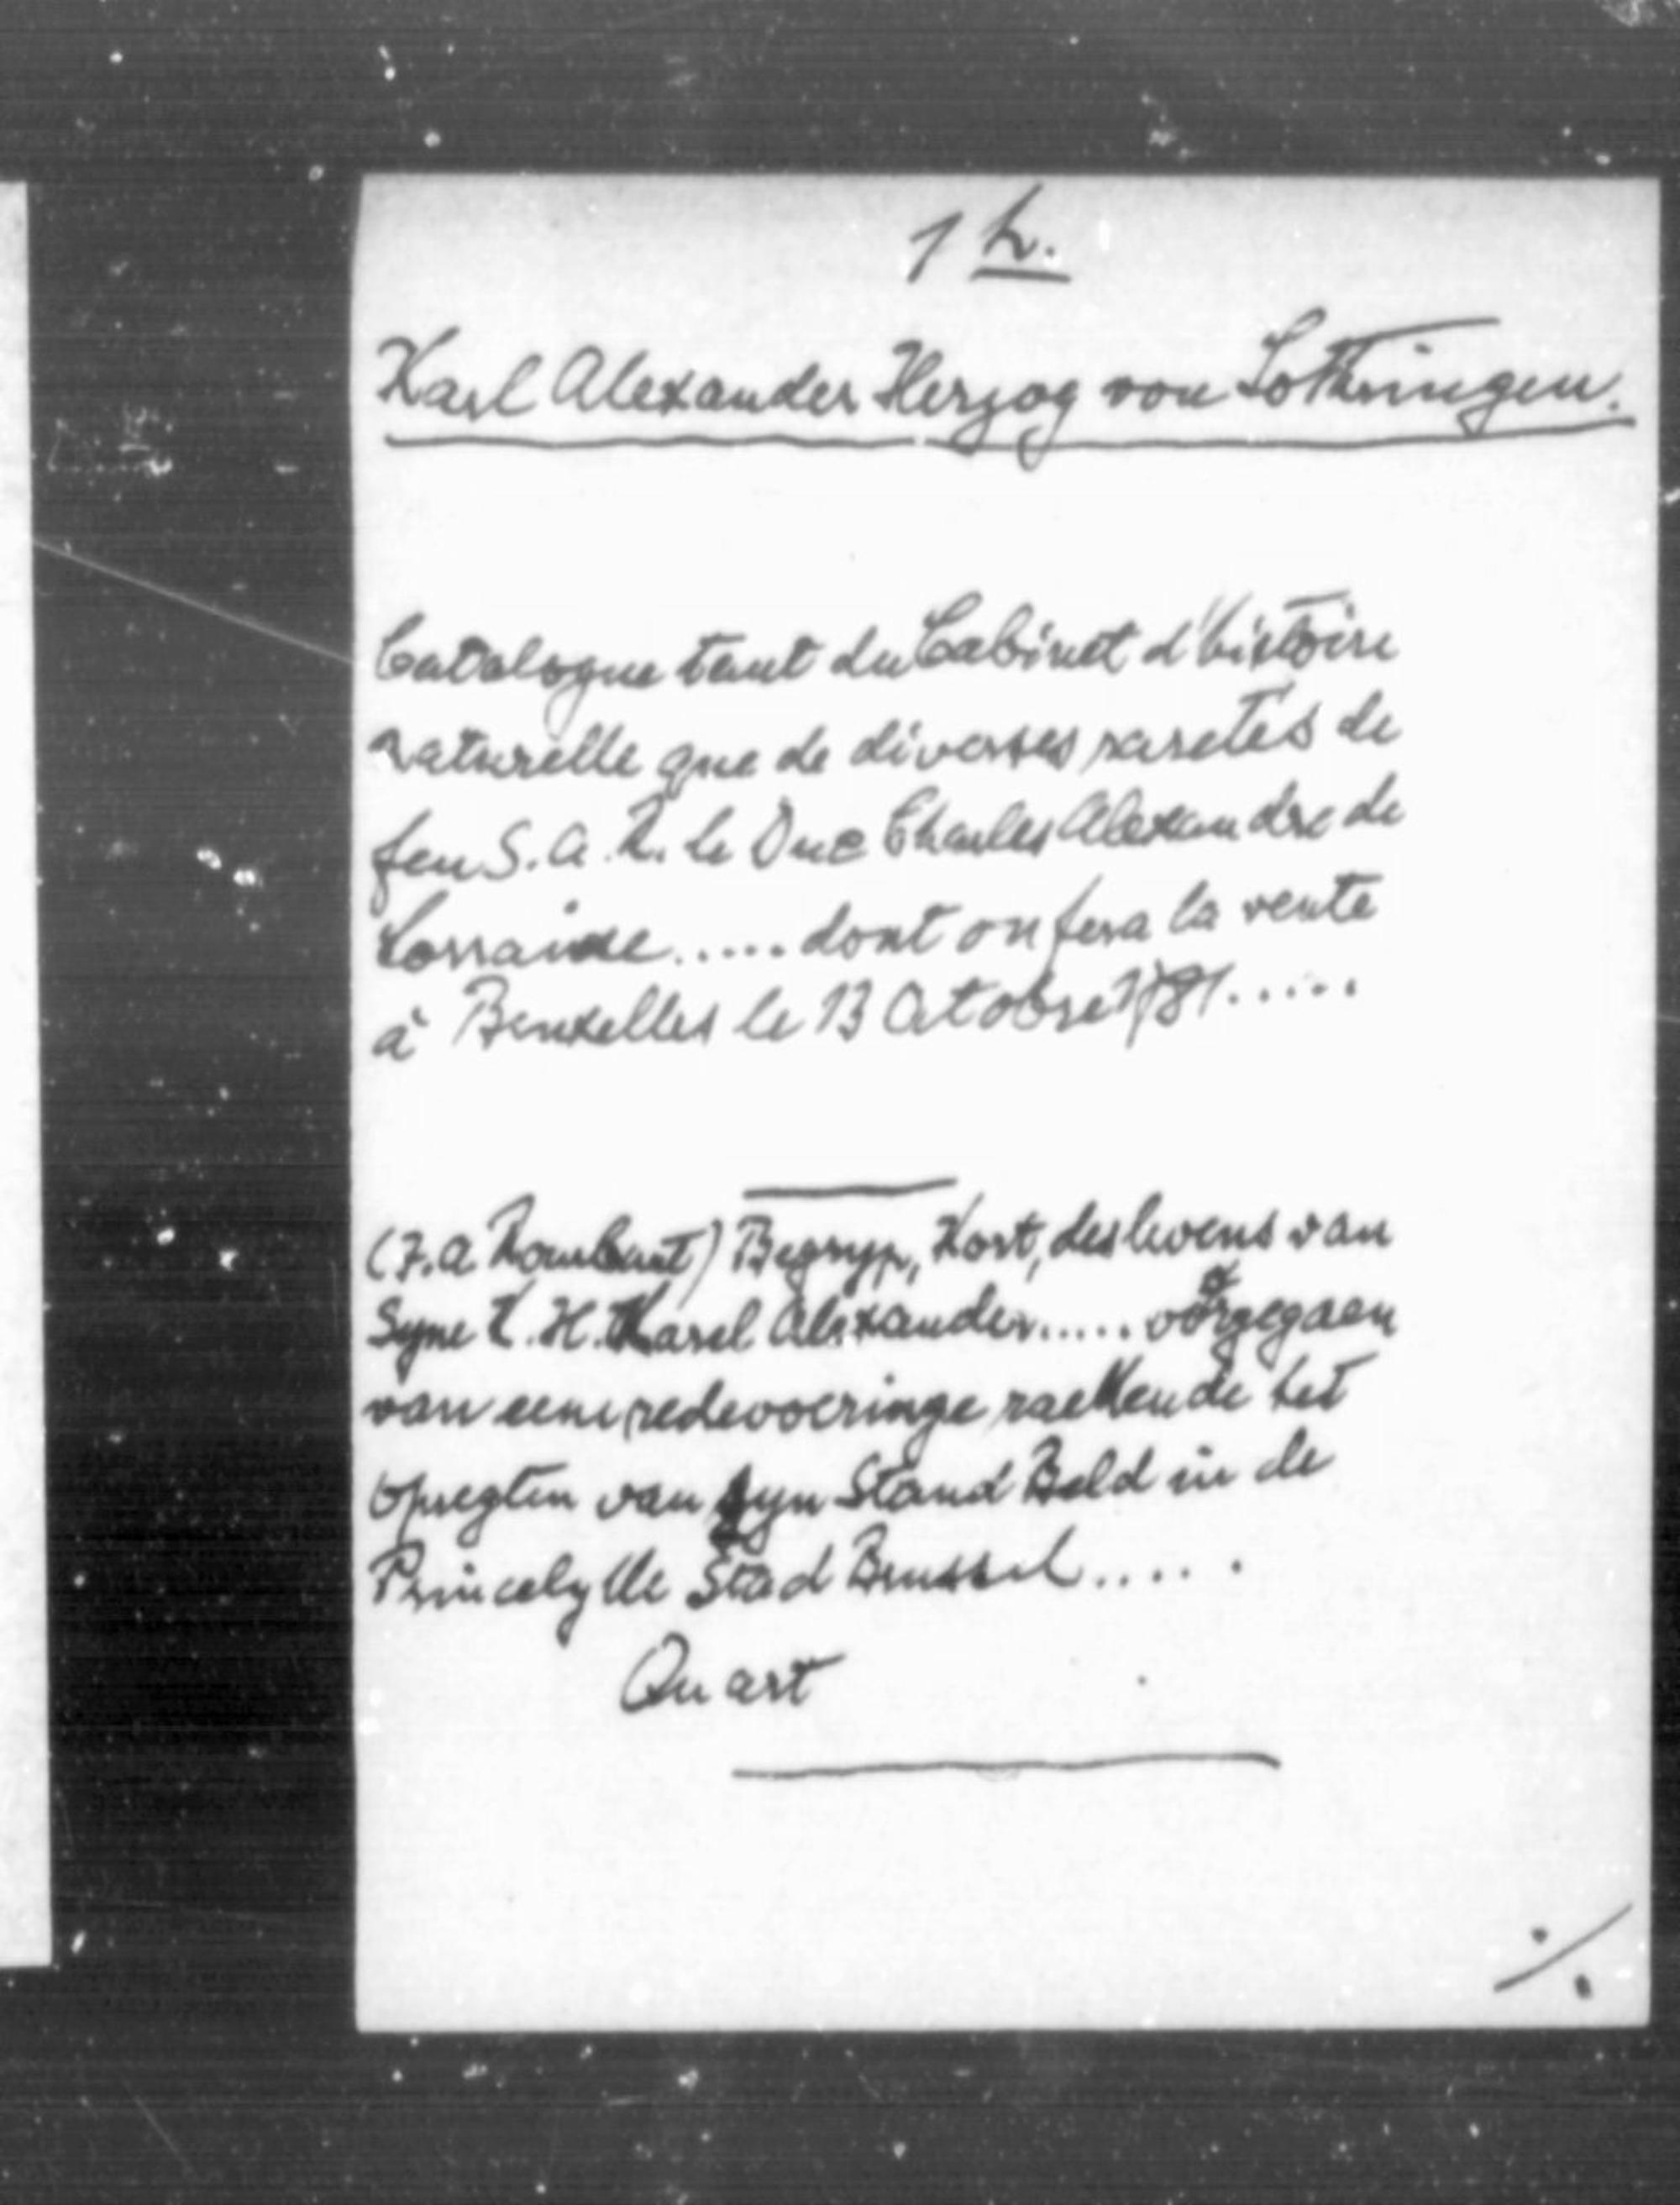 1 h.
Karl Alexander Herzog von Lothringen.
Catalogue tant du Cabinet d'histoire
naturelle que de diverses raretés de
feu S. A. R. le Duc Charles Alexandre de
Lorraine ..... dont on fera la vente
à Bruxelles le 13 Octobre 1781 .....
(J. A Rombaut) Begryp, Kort, des levens van
Syne K. H. Karel Alexander ..... voorgegaen
van eene redevoeringe raekende het
opregten van syn Stand Beld in de
Princelyke Stad Brussel .....
Quart
./.